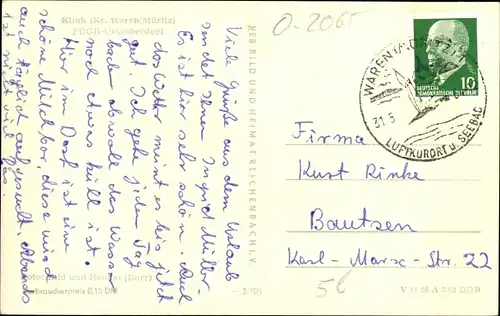 Klink (Kr. Waren/Müritz)
FDGB-Urlauberdorf
Viele Grüße aus dem Urlaub
sendet Ihnen Ingrid Müller.
Es ist hier sehr schön. Auch
das Wetter meint es bis jetzt
gut. Ich gehe jeden Tag
baden obwohl das Wasser
noch etwas kühl ist.
Hier im Dorf ist eine
schöne Milchbar, diese wird
auch täglich aufgesucht. Abends
ist nicht viel los.
Foto: Bild und Heimat (Darr)
Verbraucherpreis 0,15 DM
VEB BILD UND HEIMAT REICHENBACH I. V.
O-2065
WAREN (MÜRITZ)
31.5
LUFTKURORT u. SEEBAD
10
DEUTSCHE
DEMOKRATISCHE REPUBLIK
Firma
Kurt Rinke
Bautzen
Karl-Marx-Str. 22
5€